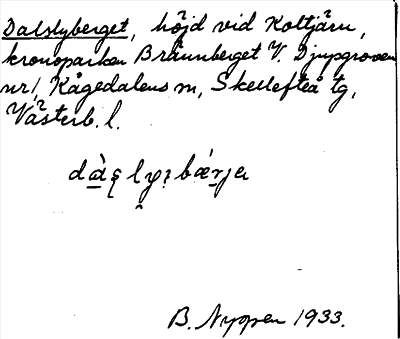 Dalslyberget, höjd vid Koltjärn,
kronoparken Brännberget V. Djupgroven
nr 1, Kågedalens m, Skellefteå tg,
Västerb. l.
B. Nyppen 1933.